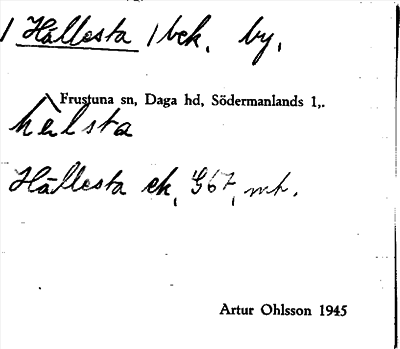 Hållesta bek. by.
Frustuna sn, Daga hd, Södermanlands l,.
hälsta
Hållesta ek,
Artur Ohlsson 1945